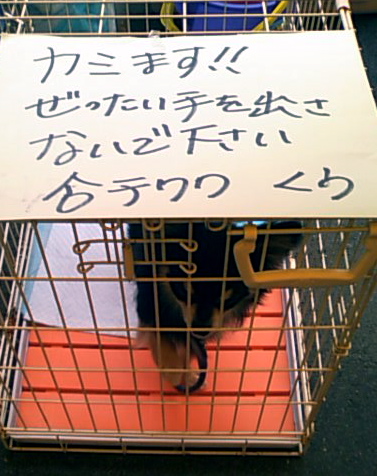 カミます!!
ぜったい手を出さ
ないで下さい
合テワワ くう